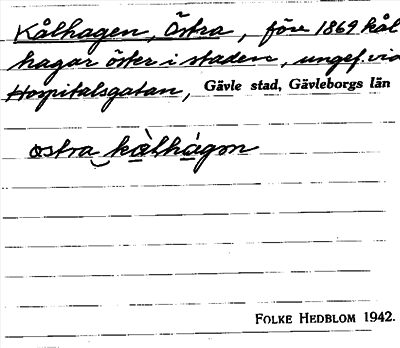 Kålhagen, Östra, före 1869 kål
hagar öster i staden, ungef. via
Hospitalsgatan, Gävle stad, Gävleborgs län
östra kàlhágɷn
FOLKE HEDBLOM 1942.